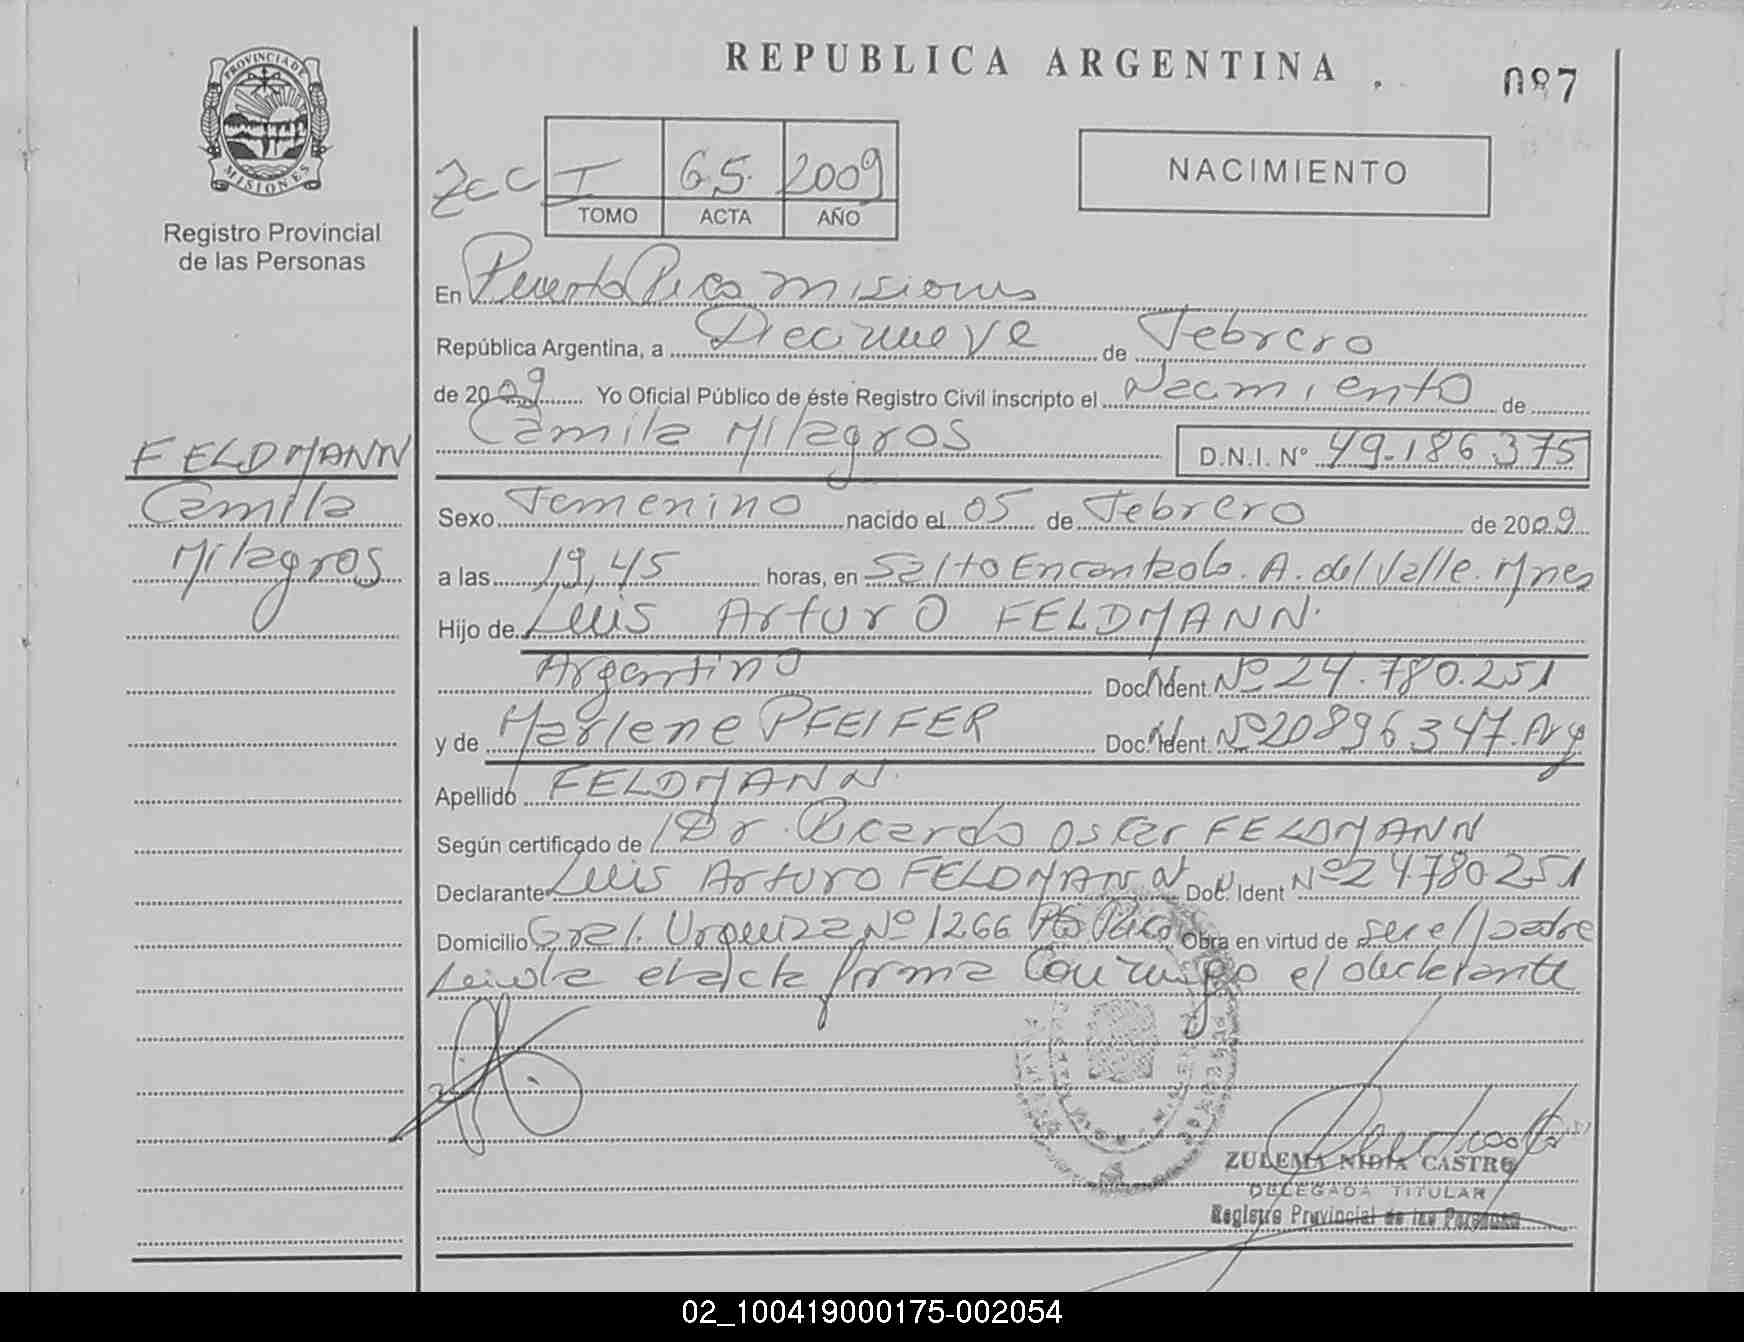 REPUBLICA ARGENTINA
087
PROVINCIA DE
MISIONES
Registro Provincial
de las Personas
I 65. 2009
TOMO ACTA AÑO
NACIMIENTO
En Puerto Rico Misiones
República Argentina, a Diecinueve de Febrero
de 2009 Yo Oficial Público de éste Registro Civil inscripto el Nacimiento de
Camila Milagros D.N.I. Nº 49.186375
FELDMANN
Camila
Milagros
Sexo Femenino nacido el 05 de Febrero de 2009
a las 19,45 horas, en Salto Encantado. A. del Valle. Mnes
Hijo de Luis Arturo FELDMANN.
Argentino Doc. Ident. Nº 24.780.251
y de Marlene PFEIFER Doc. Ident. Nº 20896347. Arg
Apellido FELDMANN.
Según certificado de Dr. Ricardo Oscar FELDMANN
Declarante Luis Arturo FELDMANN Doc. Ident Nº 24780251
Domicilio Gral. Urquiza Nº 1266 Pto Rico Obra en virtud de ser el padre
Leida el acta firma Conmigo el declarante
ZULEMA NIDIA CASTRO
DELEGADA TITULAR
Registro Provincial de las Personas
02_100419000175-002054